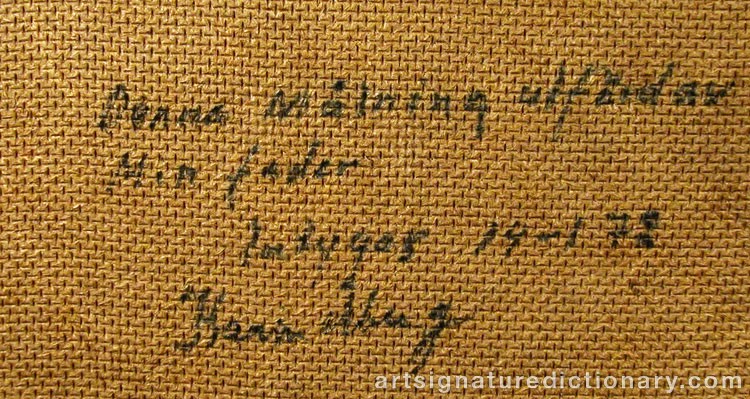 Denna målning utförd av
Min fader
Intygas 14-1 72
Åberg
artsignaturedictionary.com